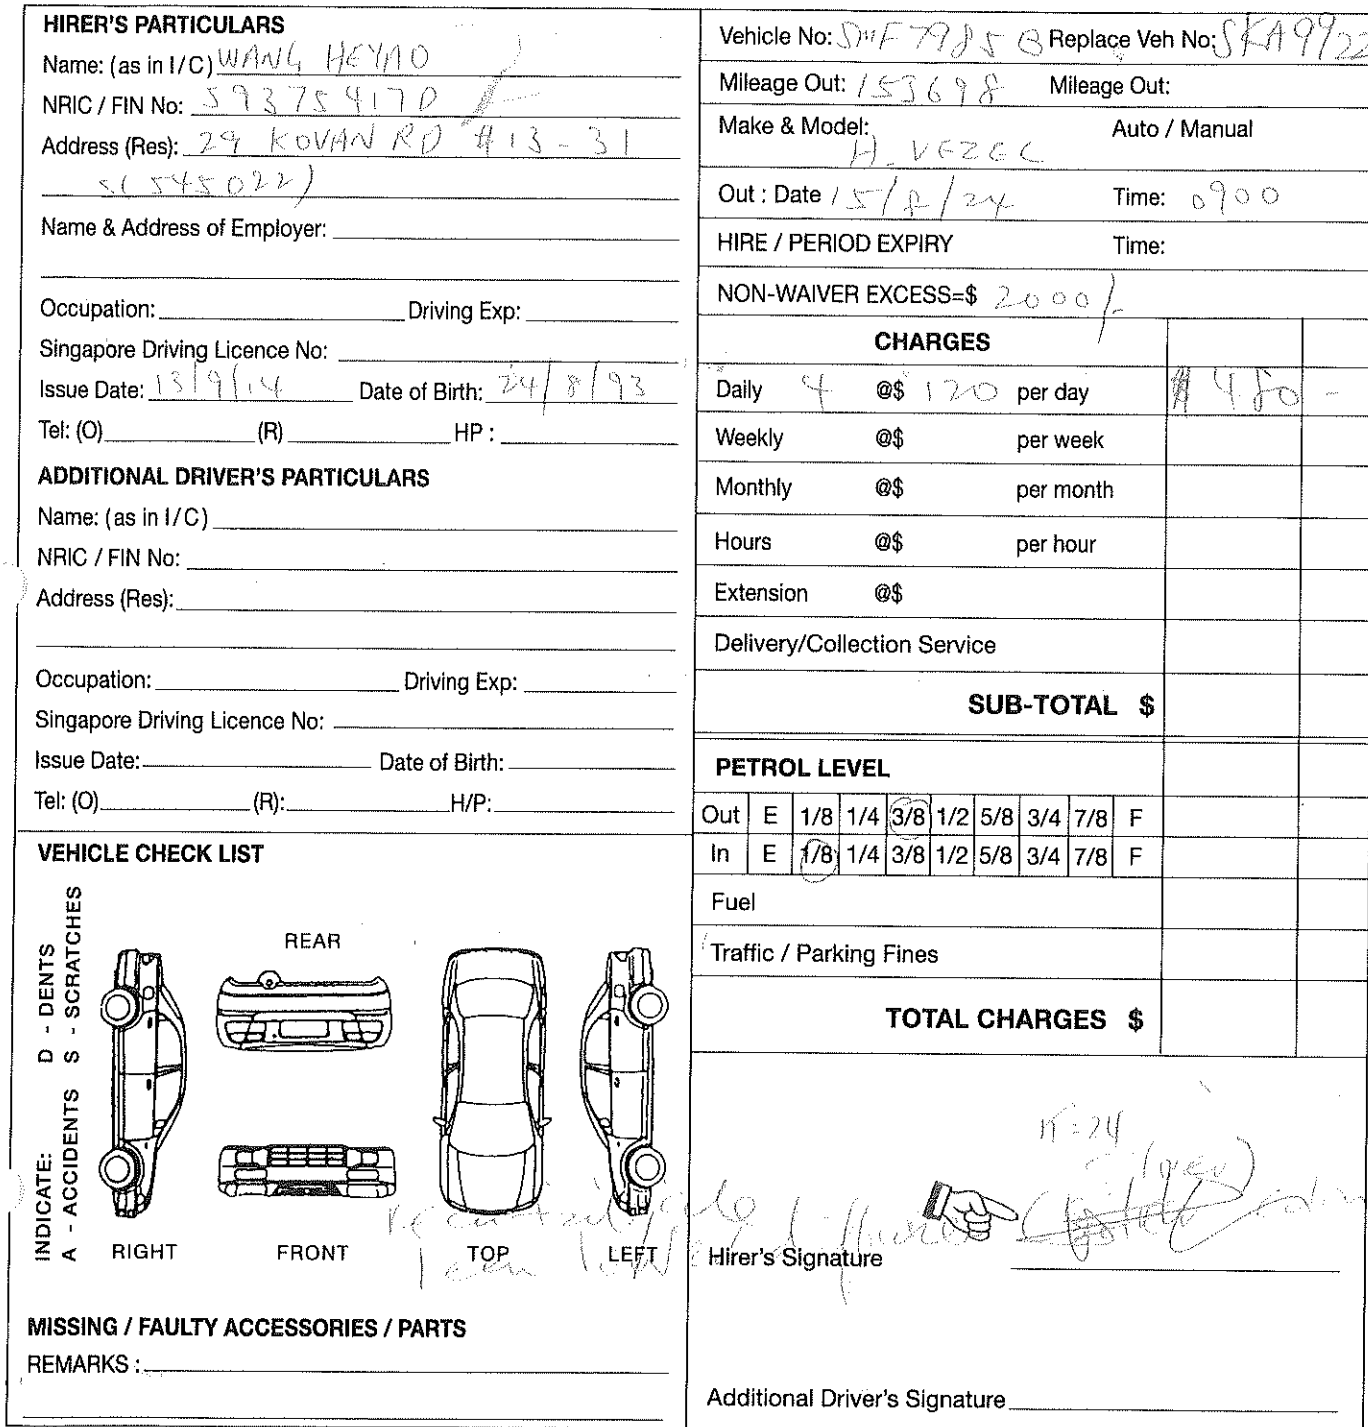 HIRER'S PARTICULARS
Name: (as in I/C) WANG HEYAO
NRIC / FIN No: S9375417D
Address (Res): 29 KOVAN RD #13-31
S(545022)
Name & Address of Employer:
Occupation: Driving Exp:
Singapore Driving Licence No:
Issue Date: 13/9/14 Date of Birth: 24/8/93
Tel: (O) (R) HP :
ADDITIONAL DRIVER'S PARTICULARS
Name: (as in I/C)
NRIC / FIN No:
Address (Res):
Occupation: Driving Exp:
Singapore Driving Licence No:
Issue Date: Date of Birth:
Tel: (O) (R): H/P:
VEHICLE CHECK LIST
INDICATE: D - DENTS
A - ACCIDENTS S - SCRATCHES
REAR
RIGHT FRONT TOP LEFT
MISSING / FAULTY ACCESSORIES / PARTS
REMARKS :
Vehicle No: Replace Veh No:
Mileage Out: 153698 Mileage Out:
Make & Model: Auto / Manual
H. VEZEL
Out : Date 15/8/24 Time: 0900
HIRE / PERIOD EXPIRY Time:
NON-WAIVER EXCESS=$ 2000/-
CHARGES
Daily 4 @$ 120 per day $ 480 -
Weekly @$ per week
Monthly @$ per month
Hours @$ per hour
Extension @$
Delivery/Collection Service
SUB-TOTAL $
PETROL LEVEL
Out E 1/8 1/4 3/8 1/2 5/8 3/4 7/8 F
In E 1/8 1/4 3/8 1/2 5/8 3/4 7/8 F
Fuel
Traffic / Parking Fines
TOTAL CHARGES $
Hirer's Signature
Additional Driver's Signature